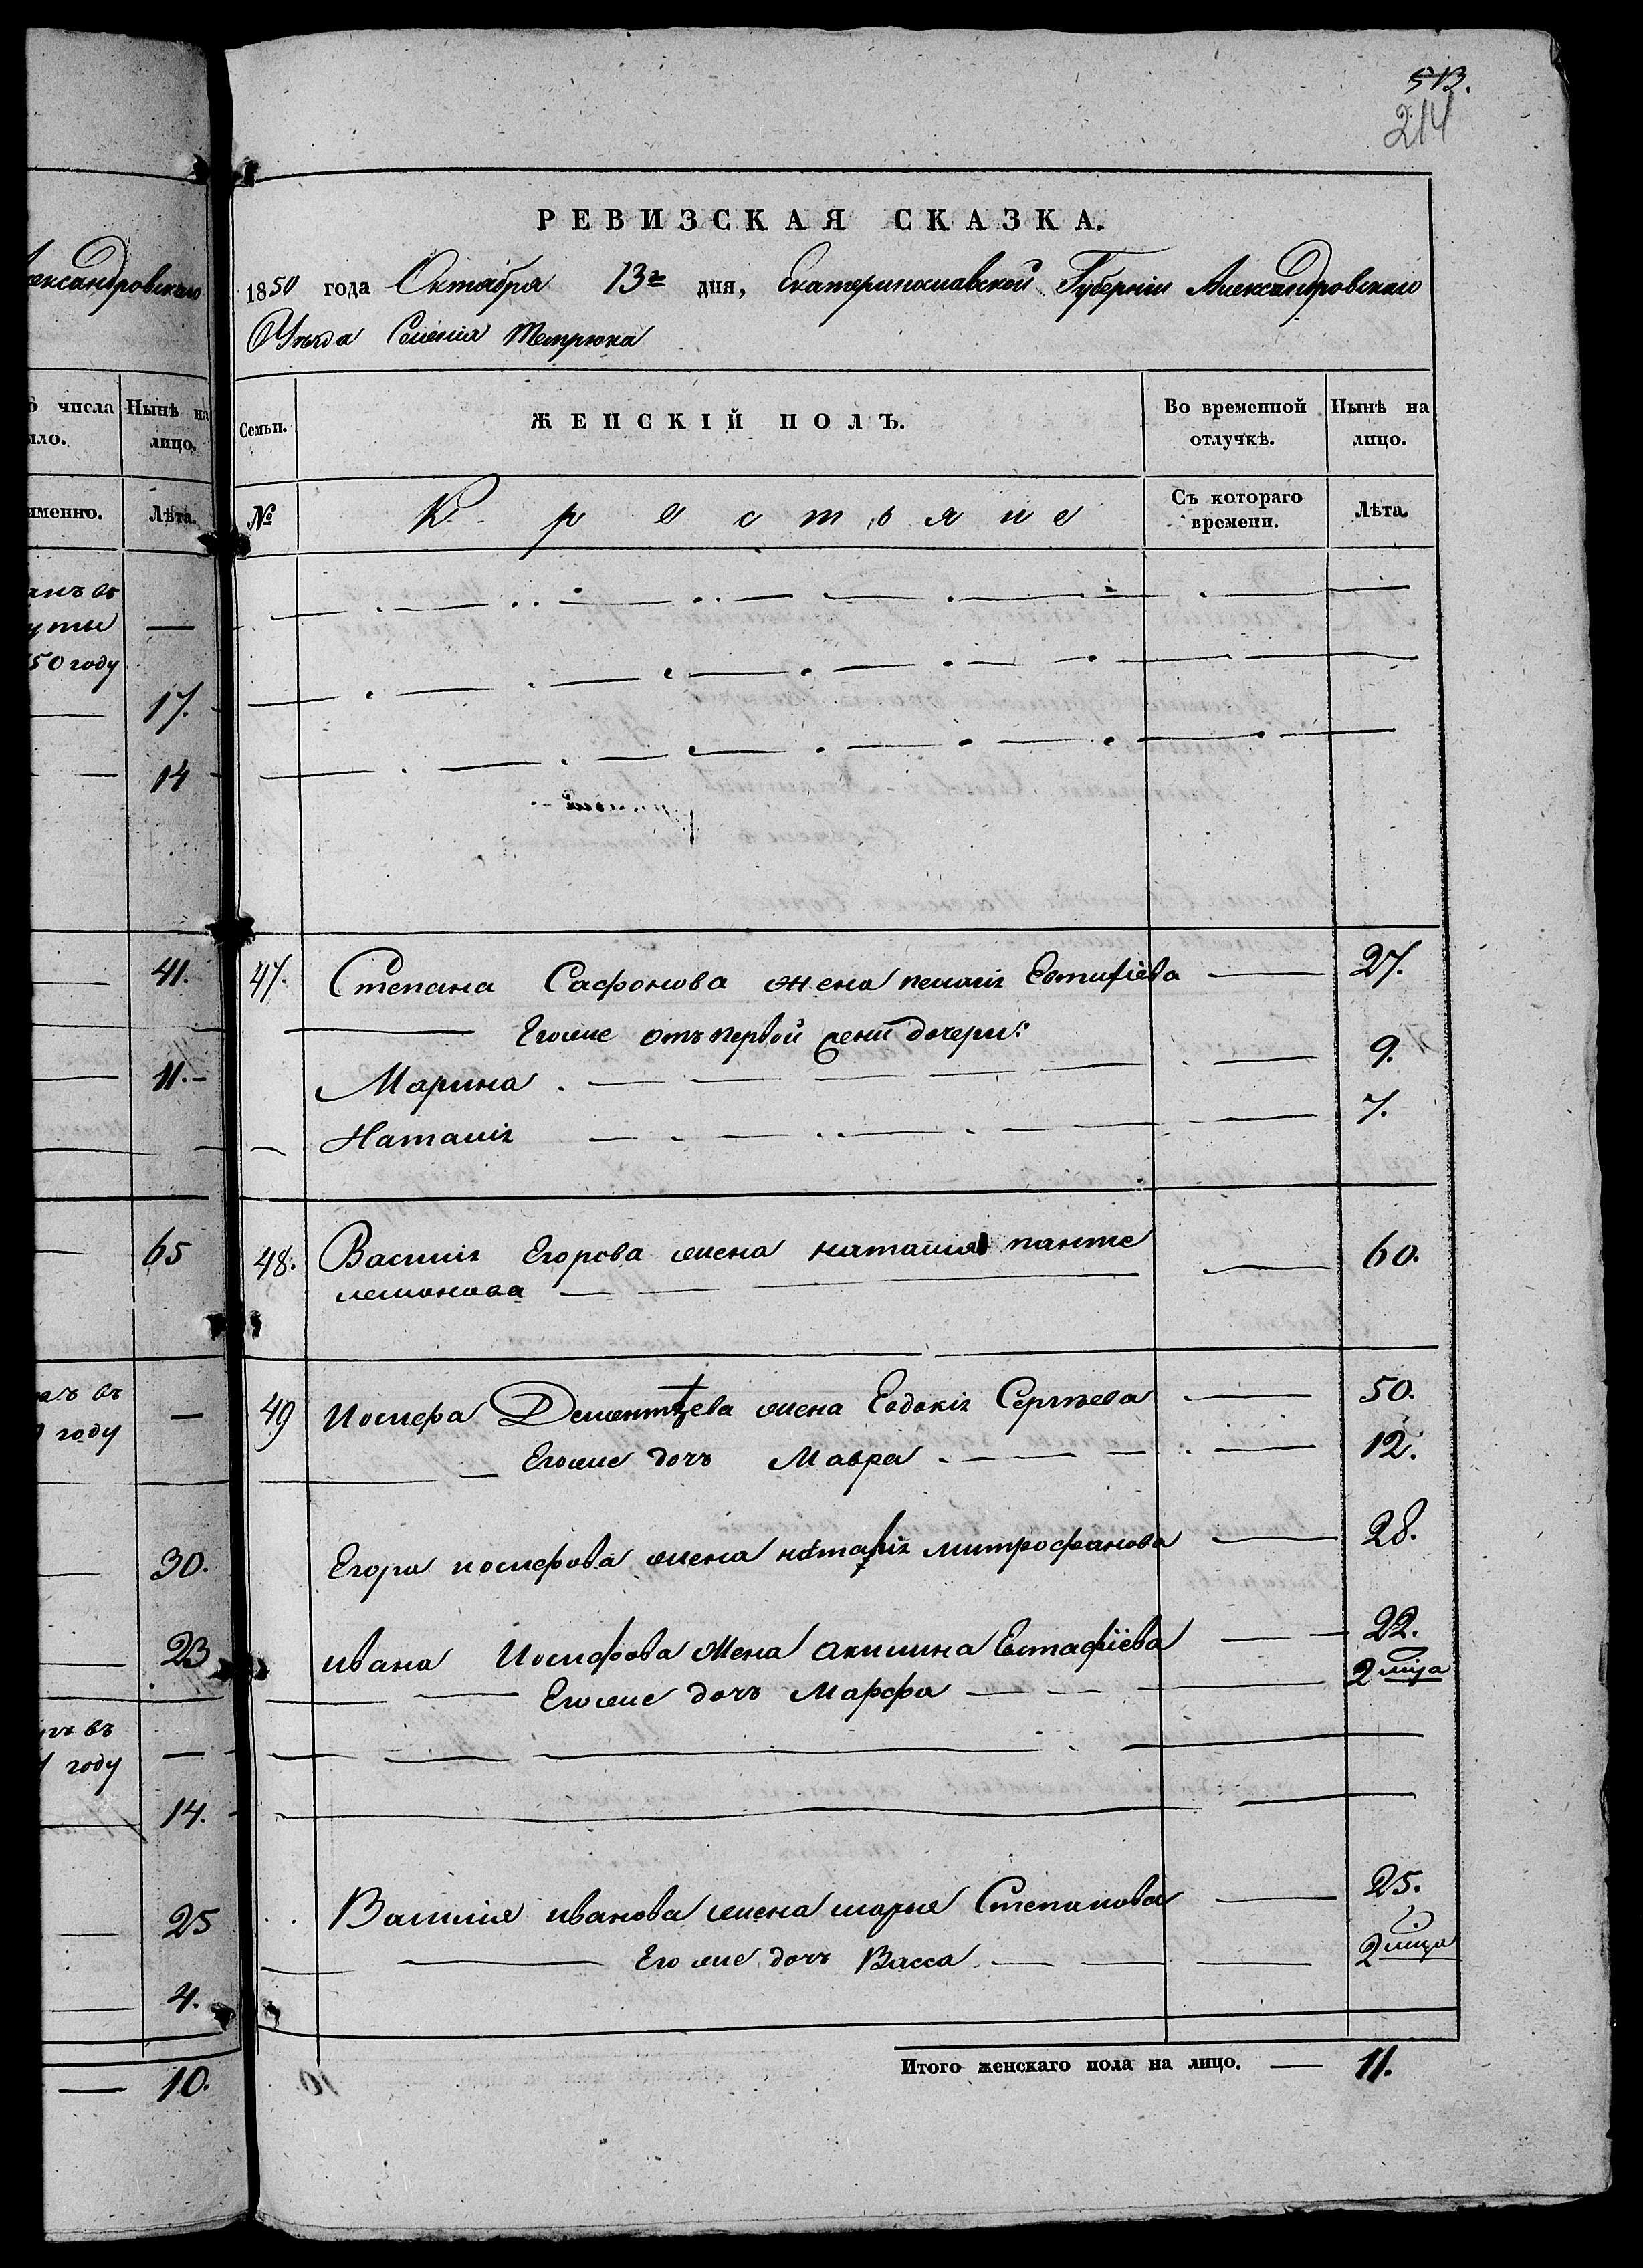 513.
214
РЕВИЗСКАЯ СКАЗКА.
1850 года Октября 13го дня, Екатеринославской Губерніи Александровскаго
Уѣзда Селенія Темрюка
Семьи.
ЖЕНСКІЙ ПОЛЪ.
Во временной отлучкѣ.
Нынѣ на лицо.
№
Крестьяне
Съ котораго времени.
Лѣта.
47. Степана Сафонова жена пелагія 27.
Егоже отъ первой жены дочери:
Марина 9.
Наталія 7.
48. Василія Егорова жена наталія панте
лемонова 60.
49 Иосифа Дементьева жена Евдокія Сергѣева 50.
Егоже дочь Мавра 12.
Егора иосифова жена наталія митрофанова 28.
ивана Иосифова жена акилина Евтафіева 22.
Егоже дочь Марфа 2 мѣца
Василия иванова жена марья Степанова 25.
Егоже дочь Васса 2 мѣца
Итого женскаго пола на лицо. 11.
Александровскаго
числа
Нынѣ на
лицо.
именно.
Лѣта.
50 году
17.
14
41.
11.
65
въ
году
30.
23
въ
году
14.
25
4.
10.